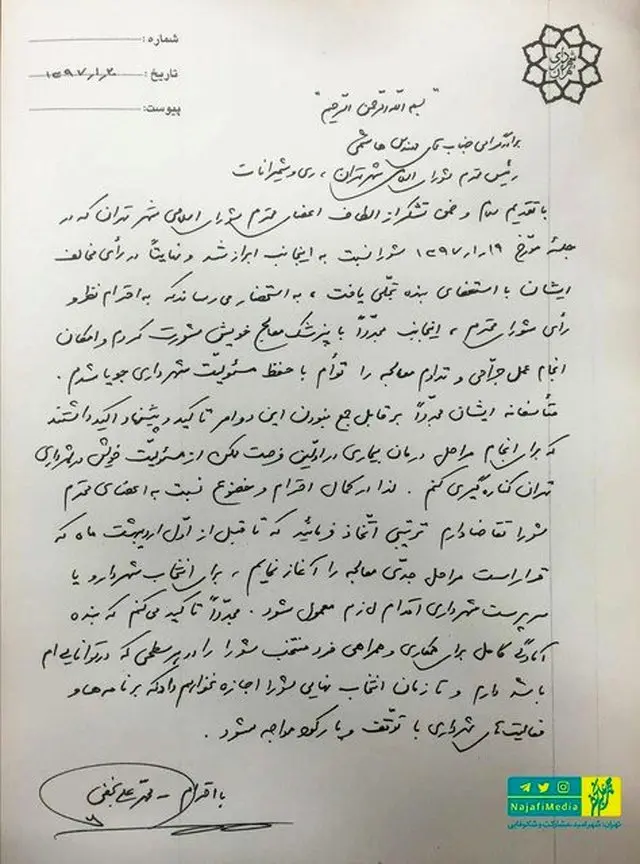 شماره :
تاریخ : ۱۳۹۷/۱/۲۰
پیوست:
شهرداری تهران
" بسم الله الرحمن الرحیم "
برادر گرامی جناب آقای مهندس هاشمی
رئیس محترم شورای اسلامی شهر تهران ، ری و شمیرانات
با تقدیم سلام و ضمن تشکر از الطاف اعضای محترم شورای اسلامی شهر تهران که در
جلسهٔ مورّخ ۱۳۹۷/۱/۱۹ شورا نسبت به اینجانب ابراز شد و نهایتاً در رأی مخالف
ایشان با استعفای بنده تجلّی یافت ، به استحضار می رساند که به احترام نظر و
رأی شورای محترم ، اینجانب مجدّداً با پزشک معالج خویش مشورت کردم و امکان
انجام عمل جرّاحی و تداوم معالجه را توأم با حفظ مسئولیّت شهرداری جویا شدم .
متأسفانه ایشان مجدّداً بر قابل جمع نبودن این دو امر تأکید و پیشنهاد اکید داشتند
که برای انجام مراحل درمان بیماری در اولّین فرصت ممکن از مسئولیّت خویش در شهرداری
تهران کناره گیری کنم . لذا در کمال احترام و خضوع نسبت به اعضای محترم
شورا تقاضا دارم ترتیبی اتّخاذ فرمائید که تا قبل از اوّل اردیبهشت ماه که
قرار است مراحل جدّی معالجه را آغاز نمایم ، برای انتخاب شهردار و یا
سرپرست شهرداری اقدام لازم معمول شود . مجدّداً تأکید می کنم که بنده
آمادگی کامل برای همکاری و همراهی فرد منتخب شورا را در هر سطحی که در توانایی ام
باشد دارم و تا زمان انتخاب نهایی شورا اجازه نخواهم داد که برنامه ها و
فعالیت های شهرداری با توقّف و یا رکود مواجه شود .
با احترام – محمّد علی نجفی
NajafiMedia
تهران؛ شهر امید، مشارکت و شکوفایی